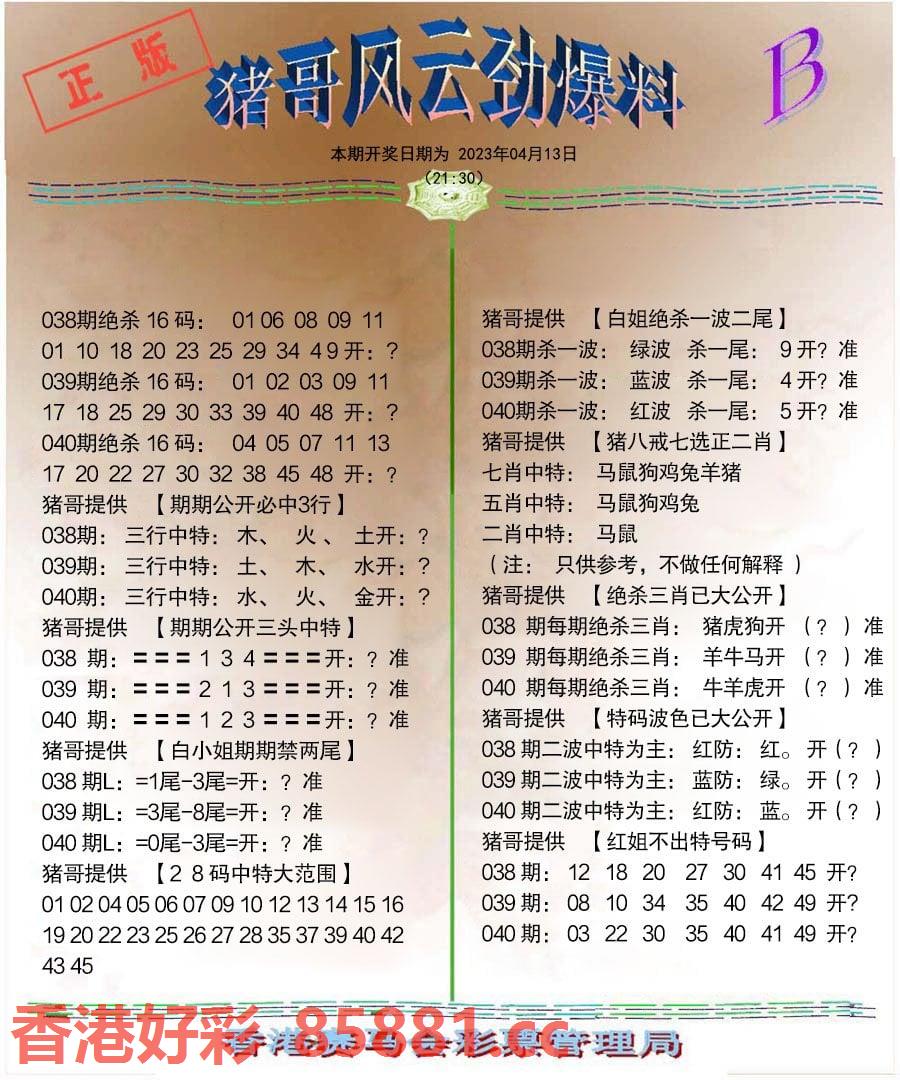 正版
猪哥风云劲爆料
B
本期开奖日期为 2023年04月13日
(21:30)
038期绝杀 16 码： 01 06 08 09 11
01 10 18 20 23 25 29 34 4 9 开：？
039期绝杀 16 码： 01 02 03 09 11
17 18 25 29 30 33 39 40 48 开：？
040期绝杀 16 码： 04 05 07 11 13
17 20 22 27 30 32 38 45 48 开：？
猪哥提供 【期期公开必中3行】
038期：三行中特：木、 火 、 土开：？
039期：三行中特：土、 木、 水开：？
040期：三行中特：水、 火、 金开：？
猪哥提供 【期期公开三头中特】
038 期：＝＝＝１３４＝＝＝开：？准
039 期：＝＝＝２１３＝＝＝开：？准
040 期：＝＝＝１２３＝＝＝开：？准
猪哥提供 【白小姐期期禁两尾】
038 期L：=1尾–3尾=开：？准
039 期L：=3尾–8尾=开：？准
040 期L：=0尾–3尾=开：？准
猪哥提供 【２８码中特大范围】
01 02 04 05 06 07 09 10 12 13 14 15 16
19 20 22 23 25 26 27 28 35 37 39 40 42
43 45
猪哥提供 【白姐绝杀一波二尾】
038期杀一波： 绿波 杀一尾： 9 开？准
039期杀一波： 蓝波 杀一尾： 4 开？准
040期杀一波： 红波 杀一尾： 5 开？准
猪哥提供 【猪八戒七选正二肖】
七肖中特： 马鼠狗鸡兔羊猪
五肖中特： 马鼠狗鸡兔
二肖中特： 马鼠
（注： 只供参考，不做任何解释 ）
猪哥提供 【绝杀三肖已大公开】
038 期每期绝杀三肖： 猪虎狗开 （？ ）准
039 期每期绝杀三肖： 羊牛马开 （？ ）准
040 期每期绝杀三肖： 牛羊虎开 （？ ）准
猪哥提供 【特码波色已大公开】
038 期二波中特为主： 红防： 红。 开（？ ）
039 期二波中特为主： 蓝防： 绿。 开（？ ）
040 期二波中特为主： 红防： 蓝。 开（？ ）
猪哥提供 【红姐不出特号码】
038 期： 12 18 20 27 30 41 45 开?
039 期： 08 10 34 35 40 42 49 开?
040 期： 03 22 30 35 40 41 49 开?
香港好彩 85881.cc
香港赛马会彩票管理局